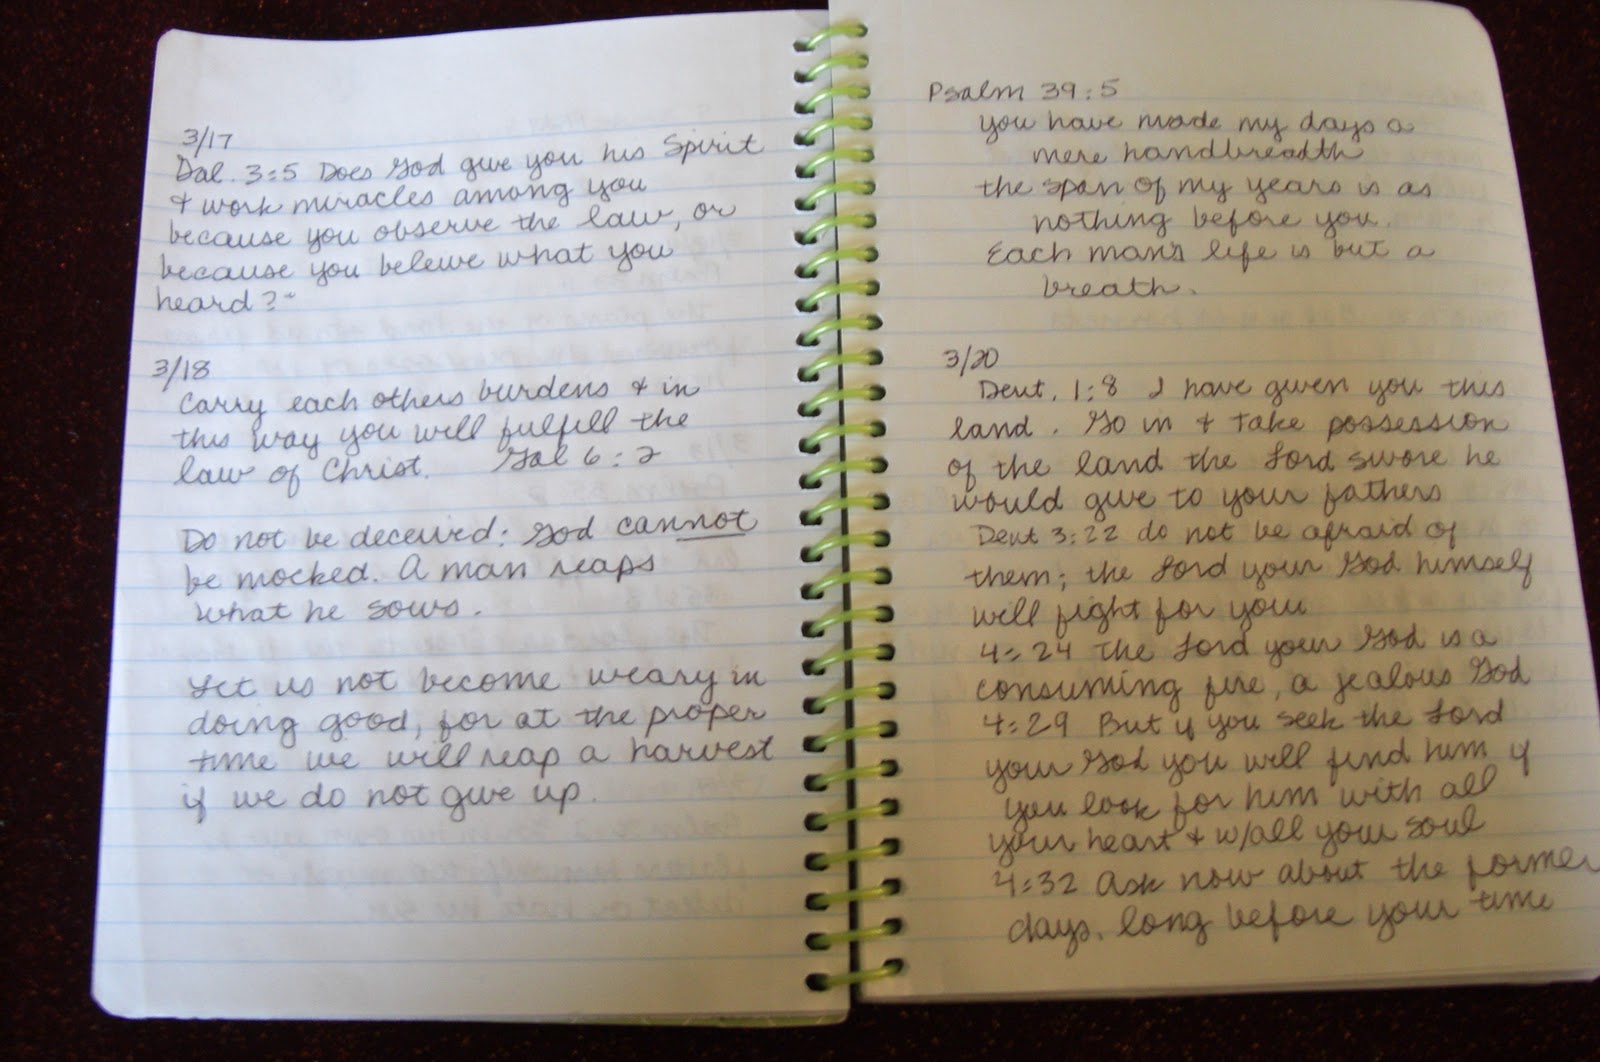 3/17
Gal. 3:5 Does God give you his Spirit
& work miracles among you
because you observe the law, or
because you believe what you
heard?"
3/18
Carry each others burdens & in
this way you will fulfill the
law of Christ. Gal 6:2
Do not be deceived: God cannot
be mocked. A man reaps
what he sows.
Let us not become weary in
doing good, for at the proper
time we will reap a harvest
if we do not give up.
Psalm 39:5
you have made my days a
mere handbreadth
the span of my years is as
nothing before you.
Each man's life is but a
breath.
3/20
Deut. 1:8 I have given you this
land. Go in & take possession
of the land the Lord swore he
would give to your fathers
Deut 3:22 do not be afraid of
them; the Lord your God himself
will fight for you
4:24 the Lord your God is a
consuming fire, a jealous God
4:29 But if you seek the Lord
your God you will find him if
you look for him with all
your heart & w/all your soul
4:32 Ask now about the former
days, long before your time